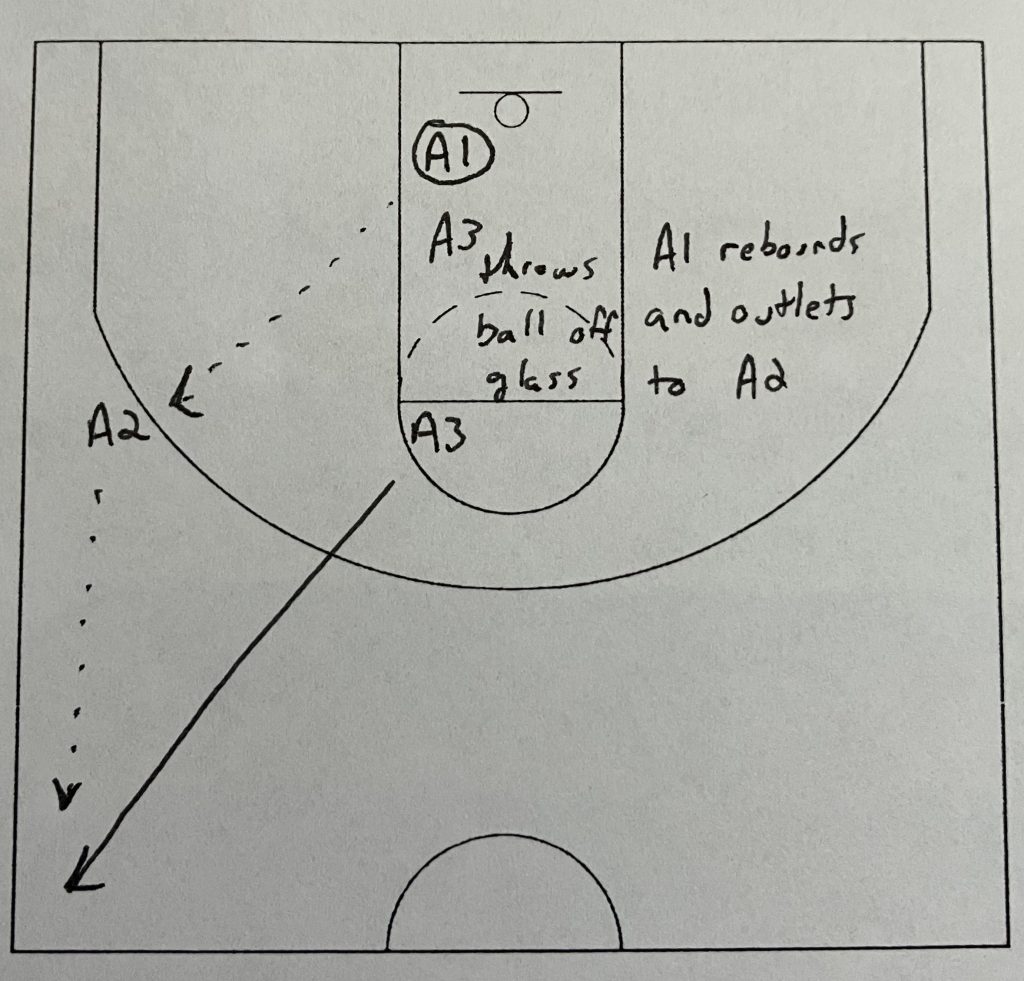 A1
A3 throws
ball off
glass
A1 rebounds
and outlets
to A2
A2
A3